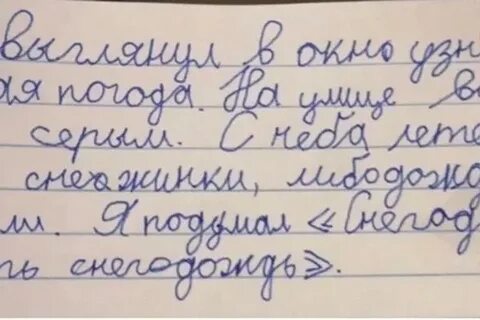 выглянул в окно узн
ая погода. На улице в
серым. С неба лете
снежинки, либодожд
ли. Я подумал «Снегод
ть снегодождь».